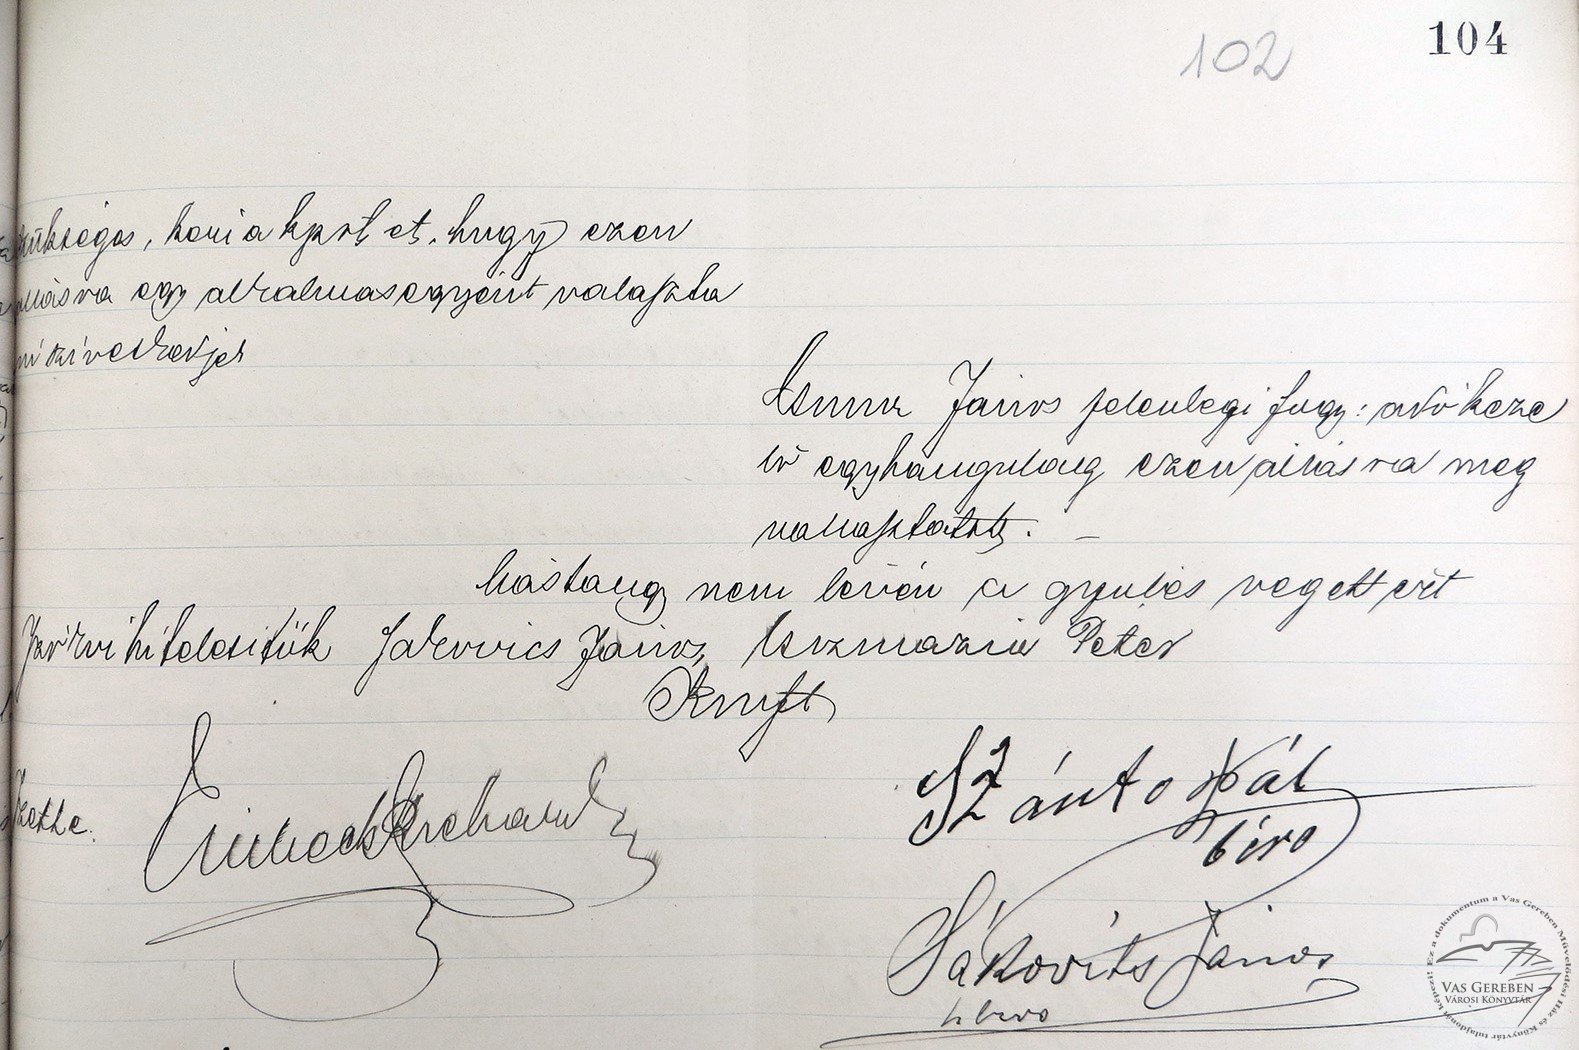 102 104
szükséges, kéri a kpzt et. hogy ezen
állásra egy alkalmas egyéntválaszta
ni szíveskedjék
János jelenlegi függ: adó keze
lő egyhangulag ezen állásra meg
választatik. –
Más tárg nem lévén a gyülés véget ért
Jzkvi hitelesitők Jakovics János, Péter
Kmft
Szántó Pál
biró
Sákovits János
h biró
VAS GEREBEN
VÁROSI KÖNYVTÁR
Ez a dokumentum a Vas Gereben Művelődési Ház és Könyvtár tulajdonát képezi!